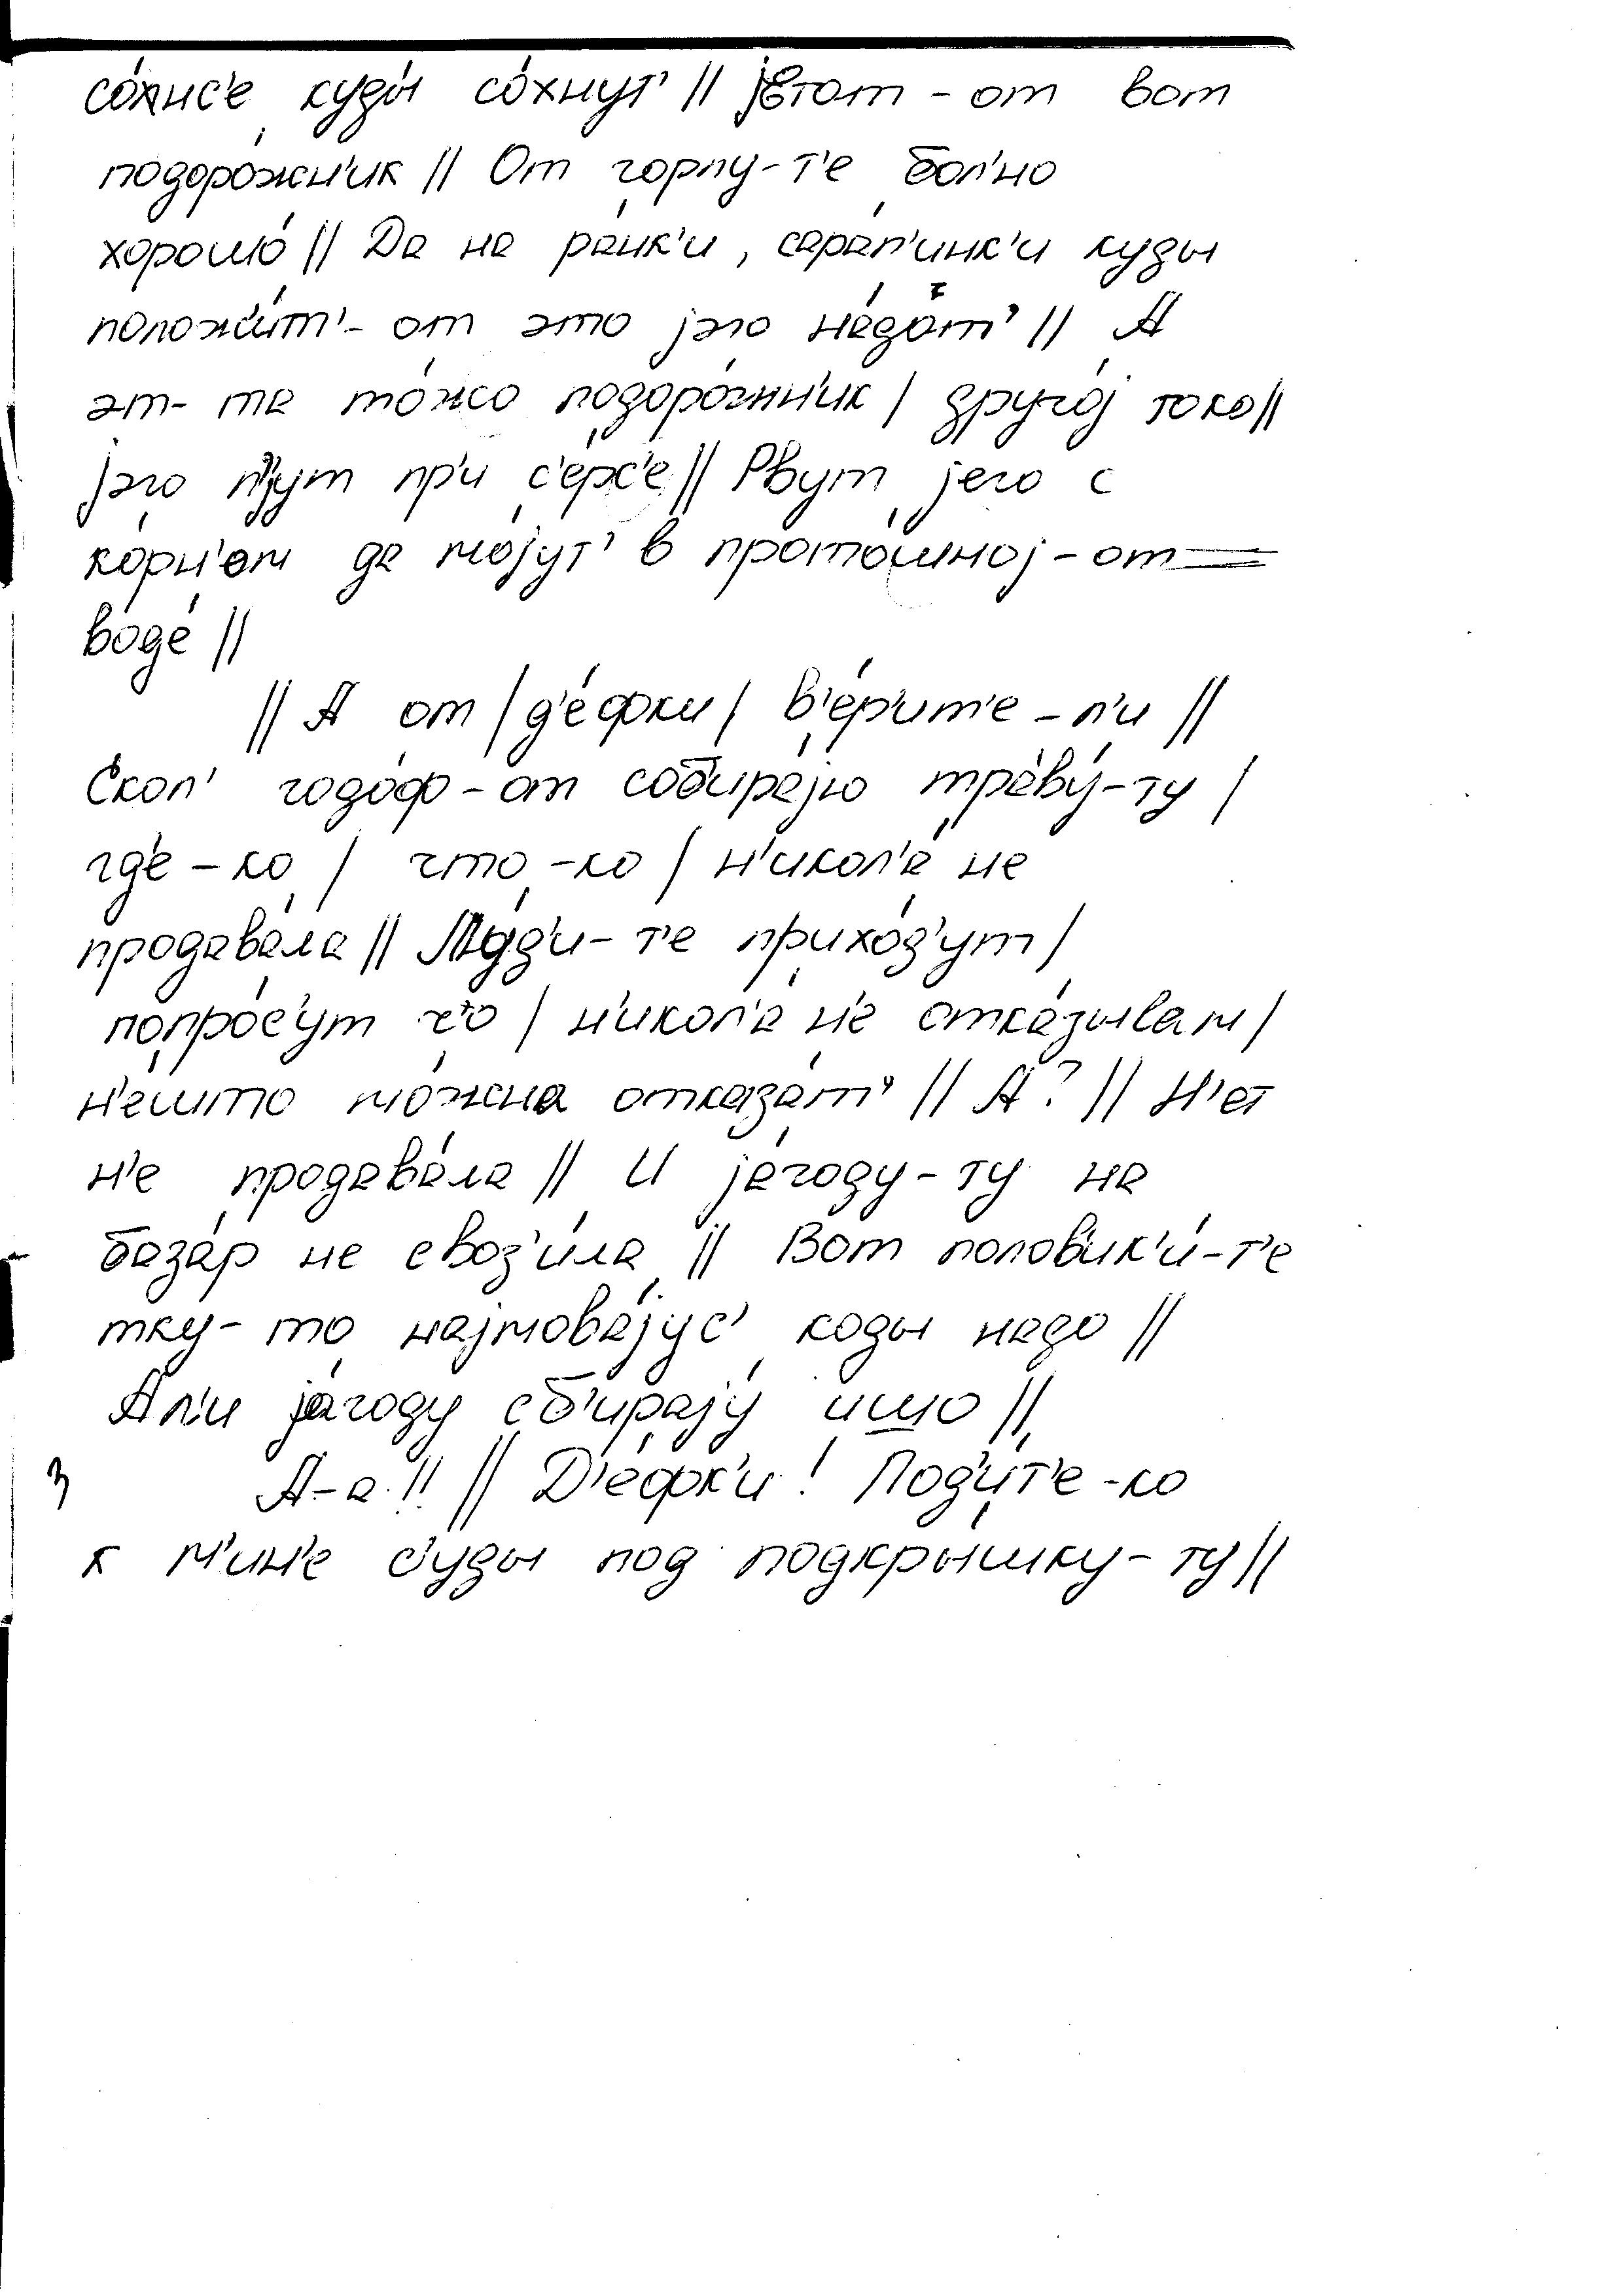 со́лнс'е куды́ со́хнут' || јэтот-от вот
подоро́жн'ик || От горлу-т'е бол'но
хорошо́ || Да на ра́нк'и, царап'инк'и куды
положи́т'-от это јэго на́дот' || А
эт-та то́жо подоро́жн'ик | друго́ј токо ||
јэго п'јут пр'и с'е́рс'е || Рвут јего с
ко́рн'ом да мо́јут' в прото́шној-от
воде́ ||
|| А от | д'е́фки | в'е́р'ит'е-л'и ||
Скол' годо́ф-от собира́ју траву́-ту |
гд'е-ко | что-ко | н'икол'а́ не
продава́ла || Л'у́д'и-т'е приход'ут |
попро́с'ут чо | н'икол'а н'е отка́зывам |
н'ешто мо́жна отказа́т' || А? || Н'ет
н'е продава́ла || И ја́году-ту на
база́р не свoз'и́ла || Вот полов'ик'и́-т'е
тку-то најмова́јус' коды надо ||
Ал'и ја́году сб'ира́ју ишо ||
3 А-а!! || Д'е́фк'и! Под'и́т'е-ко
к м'ин'е с'уды под подкры́шку-ту ||